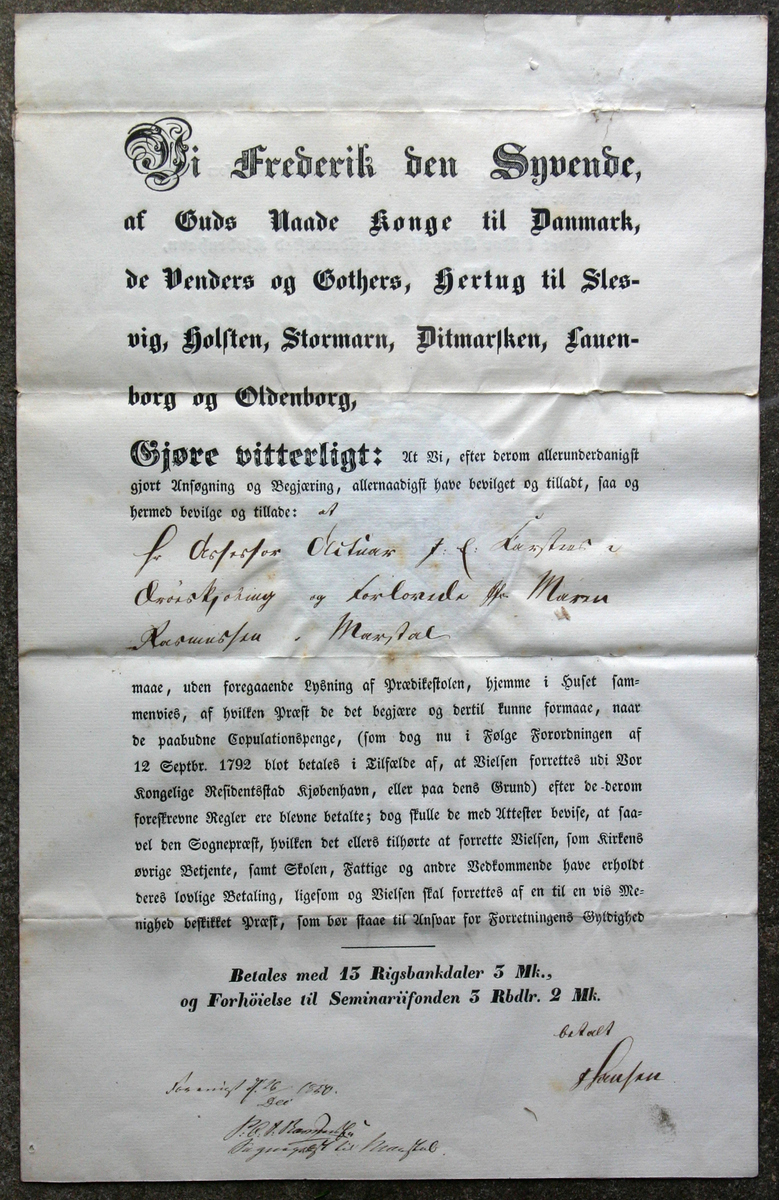 Vi Frederik den Syvende,
af Guds Naade Konge til Danmark,
de Venders og Gothers, Hertug til Sles-
vig, Holsten, Stormarn, Ditmarsken, Lauen-
borg og Oldenborg,
Gjøre vitterligt: At Vi, efter derom allerunderdanigst
gjort Ansøgning og Begjæring, allernaadigst have bevilget og tilladt, saa og
hermed bevilge og tillade: at
Hr Assessor Actuar J. C. Carstens i
Ærøeskjøbing og Forlovede Jfr Maren
Rasmussen i Marstal
maae, uden foregaaende Lysning af Prædikestolen, hjemme i Huset sam-
menvies, af hvilken Præst de det begjære og dertil kunne formaae, naar
de paabudne Copulationspenge, (som dog nu i Følge Forordningen af
12 Septbr. 1792 blot betales i Tilfælde af, at Vielsen forrettes udi Vor
Kongelige Residentsstad Kjøbenhavn, eller paa dens Grund) efter de derom
foreskrevne Regler ere blevne betalte; dog skulle de med Attester bevise, at saa-
vel den Sognepræst, hvilken det ellers tilhørte at forrette Vielsen, som Kirkens
øvrige Betjente, samt Skolen, Fattige og andre Vedkommende have erholdt
deres lovlige Betaling, ligesom og Vielsen skal forrettes af en til en vis Me-
nighed beskikket Præst, som bør staae til Ansvar for Forretningens Gyldighed
Betales med 13 Rigsbankdaler 3 Mk.,
og Forhöielse til Seminariifonden 3 Rbdlr. 2 Mk.
betalt
Hansen
Forevigt d. 16 Dec 1850.
Sognepræst til Marstal.